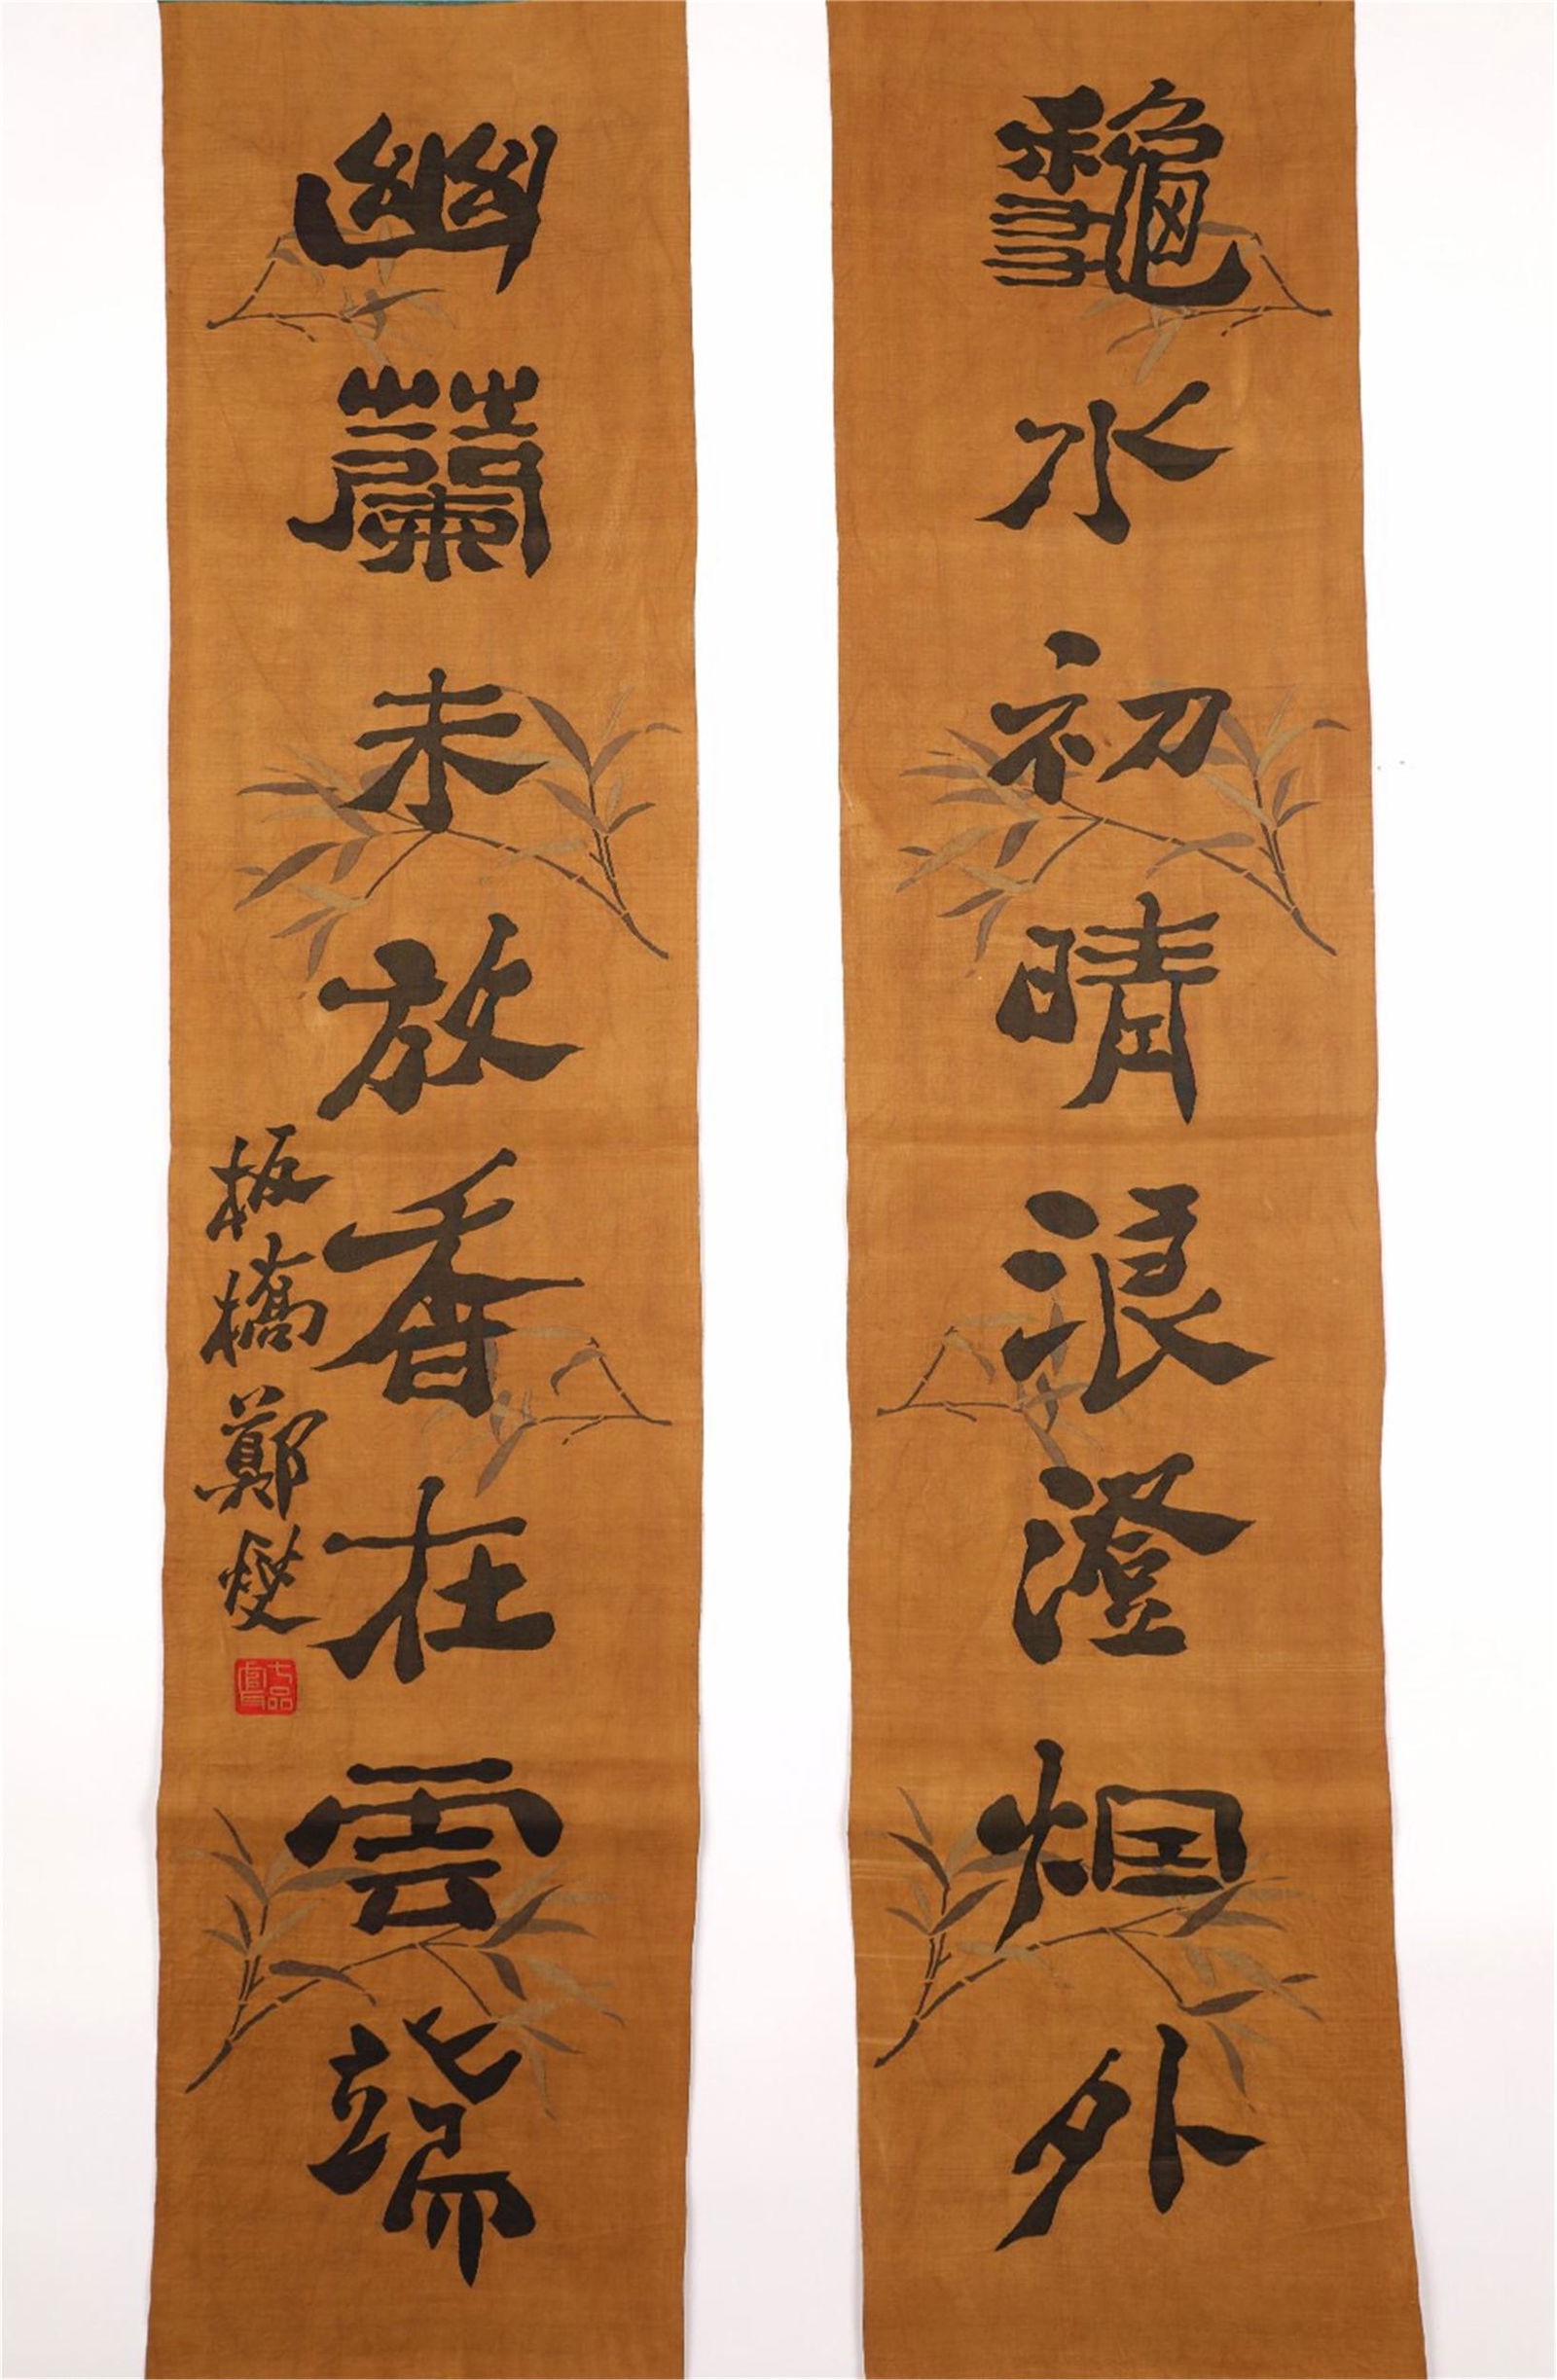 龝水初晴浪澄烟外
幽蘭未放香在雲端
板橋鄭燮
七品官耳